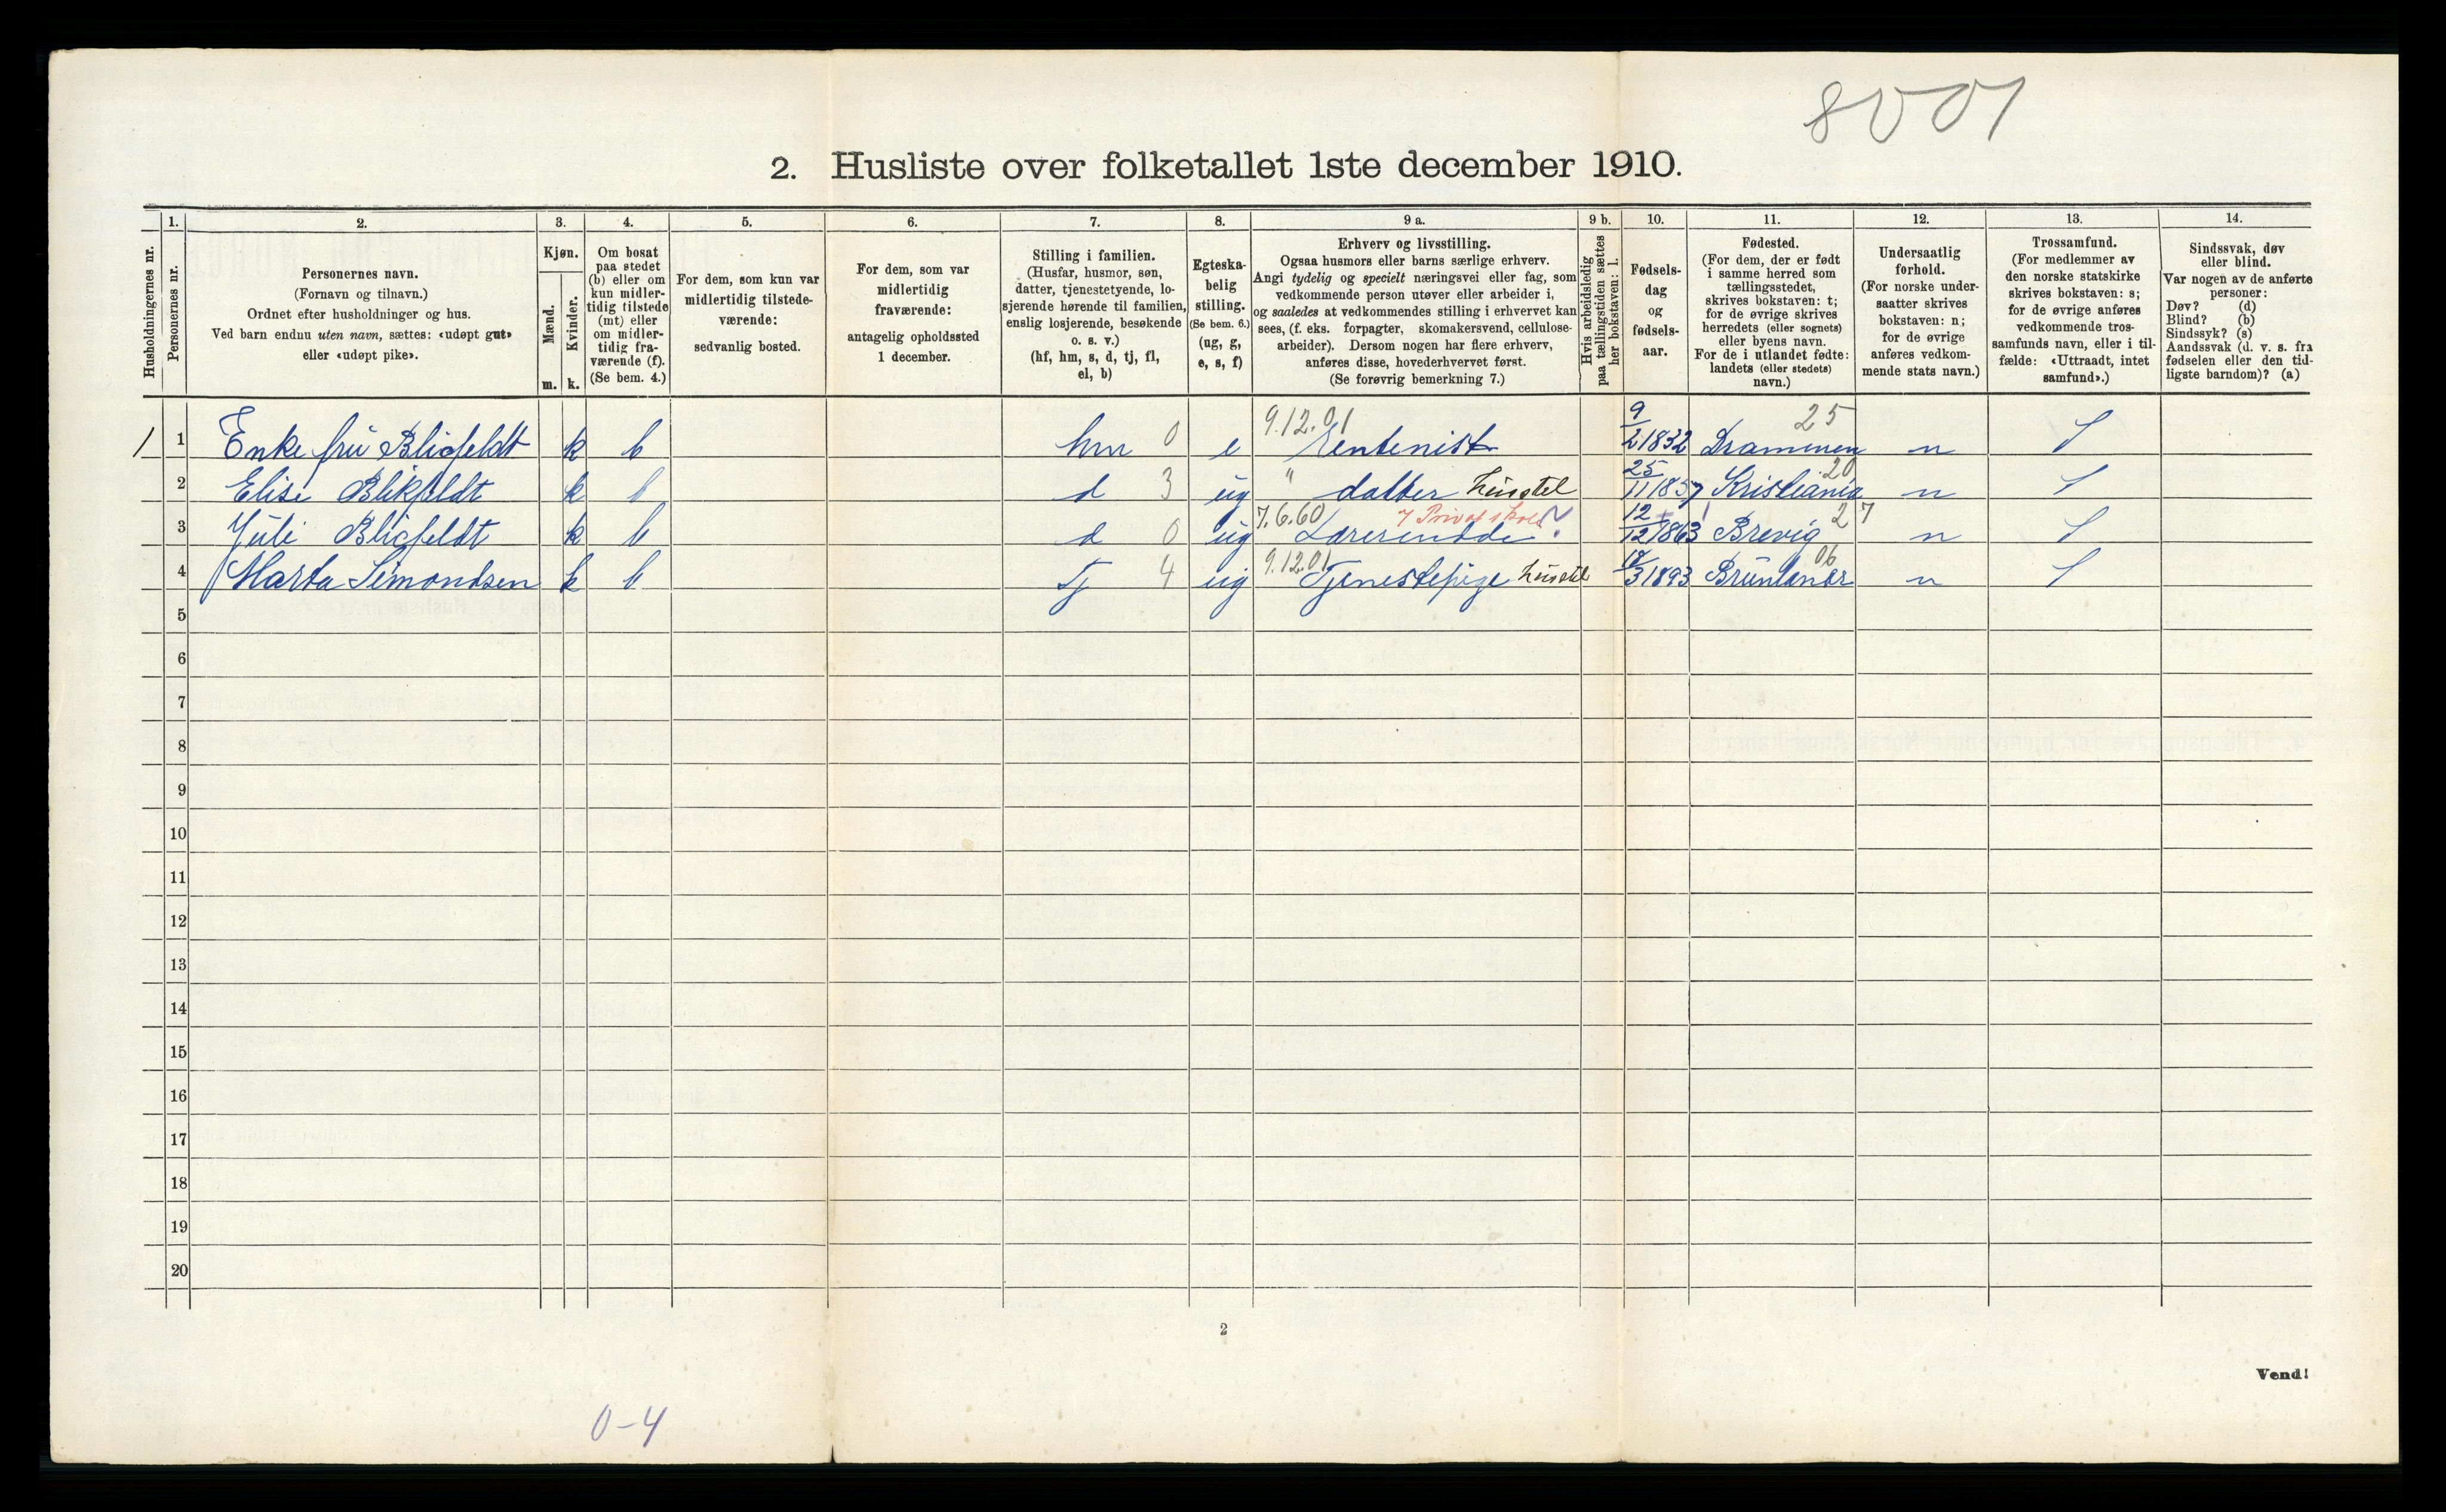 8001
2. Husliste over folketallet 1ste december 1910.
Husholdningernes nr.
1.
Personernes nr.
2.
Personernes navn.
(Fornavn og tilnavn.)
Ordnet efter husholdninger og hus.
Ved barn endnu uten navn, sættes: «udøpt gut»
eller «udøpt pike».
3.
Kjøn.
Mænd.
Kvinder.
m. k.
4.
Om bosat
paa stedet
(b) eller om
kun midler-
tidig tilstede
(mt) eller
om midler-
tidig fra-
værende (f).
(Se bem. 4.)
5.
For dem, som kun var
midlertidig tilstede-
værende:
sedvanlig bosted.
6.
For dem, som var
midlertidig
fraværende:
antagelig opholdssted
1 december.
7.
Stilling i familien.
(Husfar, husmor, søn,
datter, tjenestetyende, lo-
sjerende hørende til familien,
enslig losjerende, besøkende
o. s. v.)
(hf, hm, s, d, tj, fl,
el, b)
8.
Egteska-
belig
stilling.
(Se bem. 6.)
(ug, g,
e, s, f)
9 a.
Erhverv og livsstilling.
Ogsaa husmors eller barns særlige erhverv.
Angi tydelig og specielt næringsvei eller fag, som
vedkommende person utøver eller arbeider i,
og saaledes at vedkommendes stilling i erhvervet kan
sees, (f. eks. forpagter, skomakersvend, cellulose-
arbeider). Dersom nogen har flere erhverv,
anføres disse, hovederhvervet først.
(Se forøvrig bemerkning 7.)
9 b.
Hvis arbeidsledig
paa tællingstiden sættes
her bokstaven: l.
10.
Fødsels-
dag
og
fødsels-
aar.
11.
Fødested.
(For dem, der er født
i samme herred som
tællingsstedet,
skrives bokstaven: t;
for de øvrige skrives
herredets (eller sognets)
eller byens navn.
For de i utlandet fødte:
landets (eller stedets)
navn.)
12.
Undersaatlig
forhold.
(For norske under-
saatter skrives
bokstaven: n;
for de øvrige
anføres vedkom-
mende stats navn.)
13.
Trossamfund.
(For medlemmer av
den norske statskirke
skrives bokstaven: s;
for de øvrige anføres
vedkommende tros-
samfunds navn, eller i til-
fælde: «Uttraadt, intet
samfund».)
14.
Sindssvak, døv
eller blind.
Var nogen av de anførte
personer:
Døv? (d)
Blind? (b)
Sindssyk? (s)
Aandssvak (d. v. s. fra
fødselen eller den tid-
ligste barndom)? (a)
9.12.01 25
1 1 Enke frü Blicfeldt k b hm 0 e Rentenist 9/2 1832 Drammen n S
2 Elise Blikfeldt k b d 3 ug " datter husstel 25/11 1857 Kristiania 20 n S
7.6.60 7 Privat skole
3 Juli Blicfeldt k b d 0 ug Lærerindde ? 12/12 1863 Brevig 27 n S
9.12.01 06
4 Marta Simondsen k b Tj 4 ug Tjenestepige husstel 18/3 1893 Brünlanær n S
5
6
7
8
9
10
11
12
13
14
15
16
17
18
19
20
2
Vend!
0-4